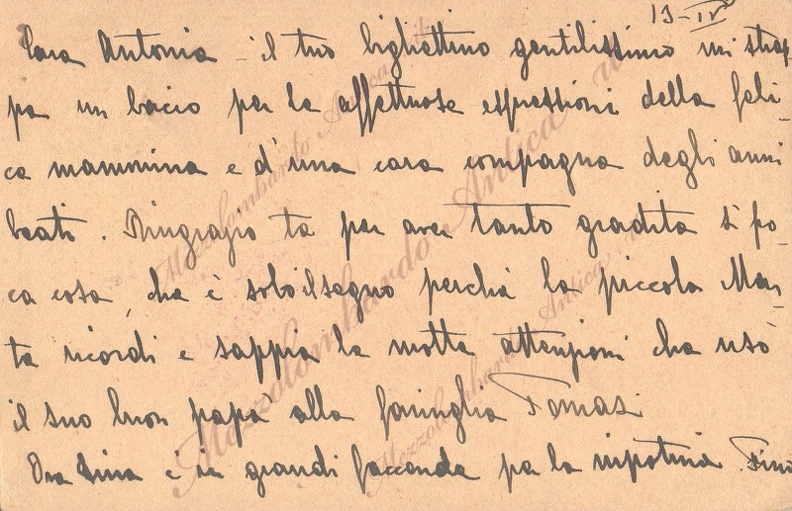 13-IV
Cara Antonia - il tuo bigliettino gentilissimo mi strap-
pa un bacio per le affettuose espressioni della feli-
ce mammina e d'una cara compagna degli anni
beati. Ringrazio te per aver tanto gradita sì po-
ca cosa, che è solo il segno perché la piccola Mar-
ta ricordi e sappia le molte attenzioni che usò
il suo buon papà alla famiglia Tomasi
Ora Lina è in grandi faccende per la nipotina.
Mezzolombardo Antica
Mezzolombardo Antica
Mezzolombardo Antica